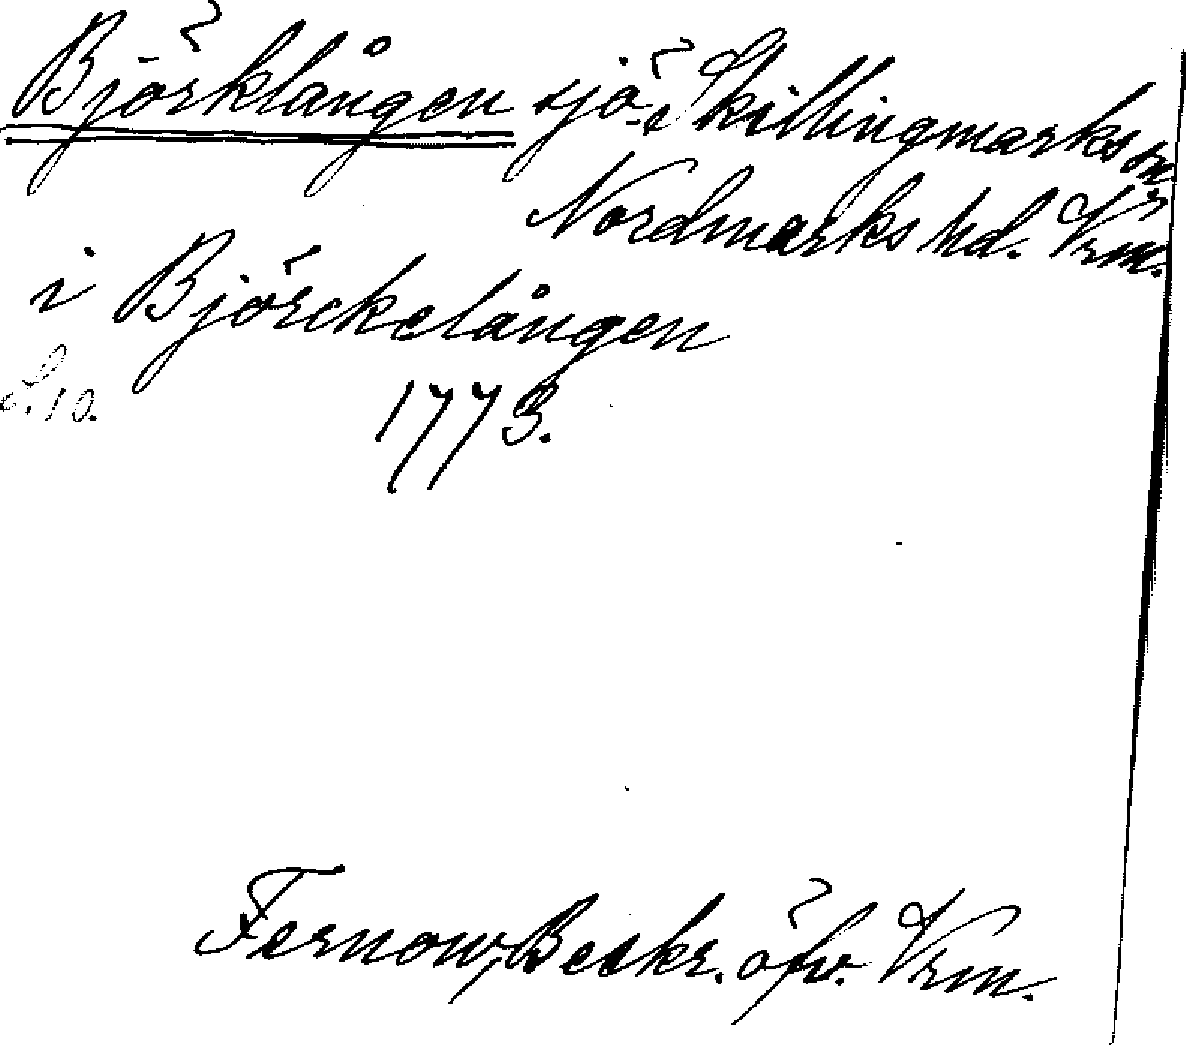 Björklången sjö i Skillingmarks sn,
Nordmarks hd. Vrm.
i Björckelången
S. 10.
1773.
Fernow, Beskr. öfv. Vrm.